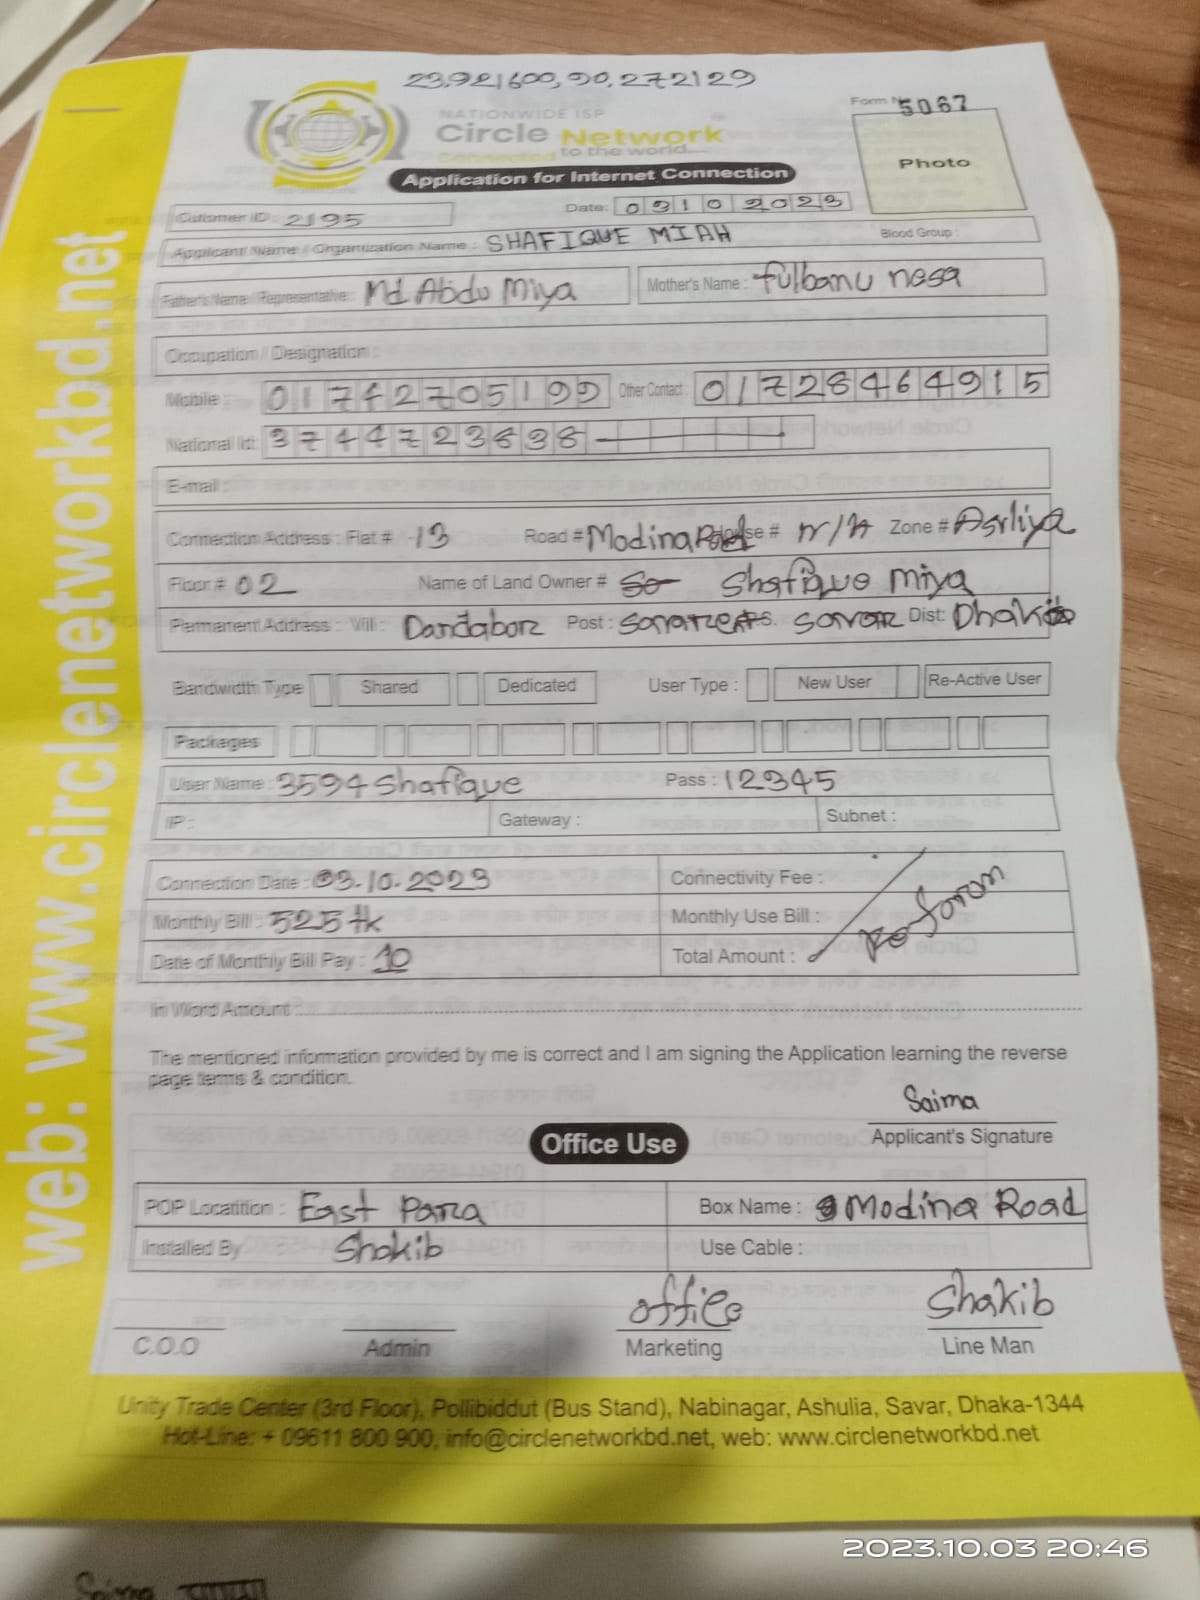 23.921600,90,272129
Form N 5067
NATIONWIDE ISP
Circle Network
Connected to the world...
Photo
Application for Internet Connection
Customer ID : 2195
Date: 03102023
Applicant Name / Organization Name : SHAFIQUE MIAH Blood Group :
Father's Name / Representative: Md Abdu Miya Mother's Name : fulbanu nesa
Occupation / Designation :
Mobile : 01742705199 Other Contact : 01728464915
National Id: 3744723838
E-mail :
Connection Address : Flat # 13 Road # Modina Road House # n/A Zone # Asrliya
Floor # 02 Name of Land Owner # Shafique Miya
Permanent Address : Vill : Dandabor Post : P.S. savar Dist: Dhaka
Bandwidth Type Shared Dedicated User Type : New User Re-Active User
Packages
User Name : 3594 Shafique Pass : 12345
IP : Gateway : Subnet :
Connection Date : 03.10.2023 Connectivity Fee :
Monthly Bill : 525 tk Monthly Use Bill :
Date of Monthly Bill Pay : 10 Total Amount :
In Word Amount :
The mentioned information provided by me is correct and I am signing the Application learning the reverse
page terms & condition.
Saima
Applicant's Signature
Office Use
POP Locatition : East Para Box Name : Modina Road
Installed By : Shakib Use Cable :
office Shakib
C.O.O Admin Marketing Line Man
Unity Trade Center (3rd Floor), Pollibiddut (Bus Stand), Nabinagar, Ashulia, Savar, Dhaka-1344
Hot-Line: + 09611 800 900, info@circlenetworkbd.net, web: www.circlenetworkbd.net
web: www.circlenetworkbd.net
2023.10.03 20:46
Saima